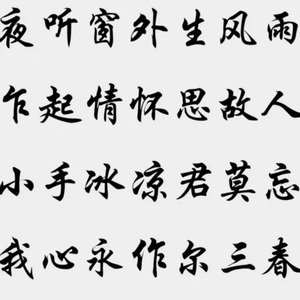 夜听窗外生风雨
乍起情怀思故人
小手冰凉君莫忘
我心永作尔三春